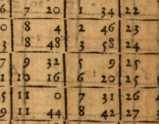 6 7 20 1 34 22
0 8 4 2 46 23
3 8 48 3 58 24
7 9 32 5 9 25
10 16 6 20 25
5 11 0 7 31 26
9 11 44 8 42 27